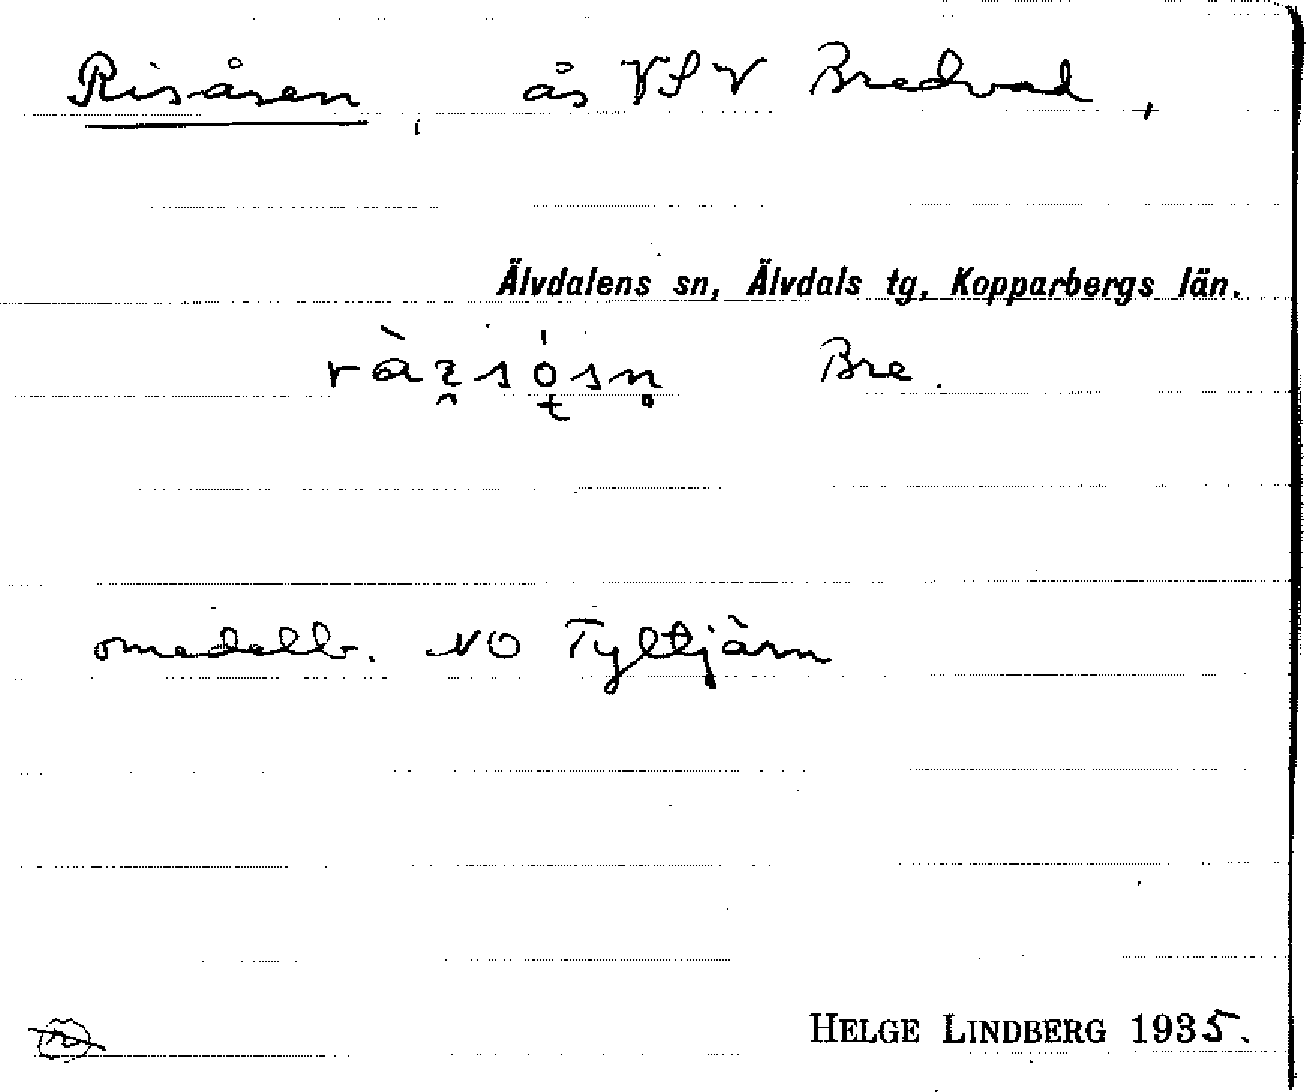 Risåsen, ås VSV Bredvad,
Älvdalens sn, Älvdals tg, Kopparbergs län.
Bre.
omedelb. NO Tyltjärn
HELGE LINDBERG 1935.